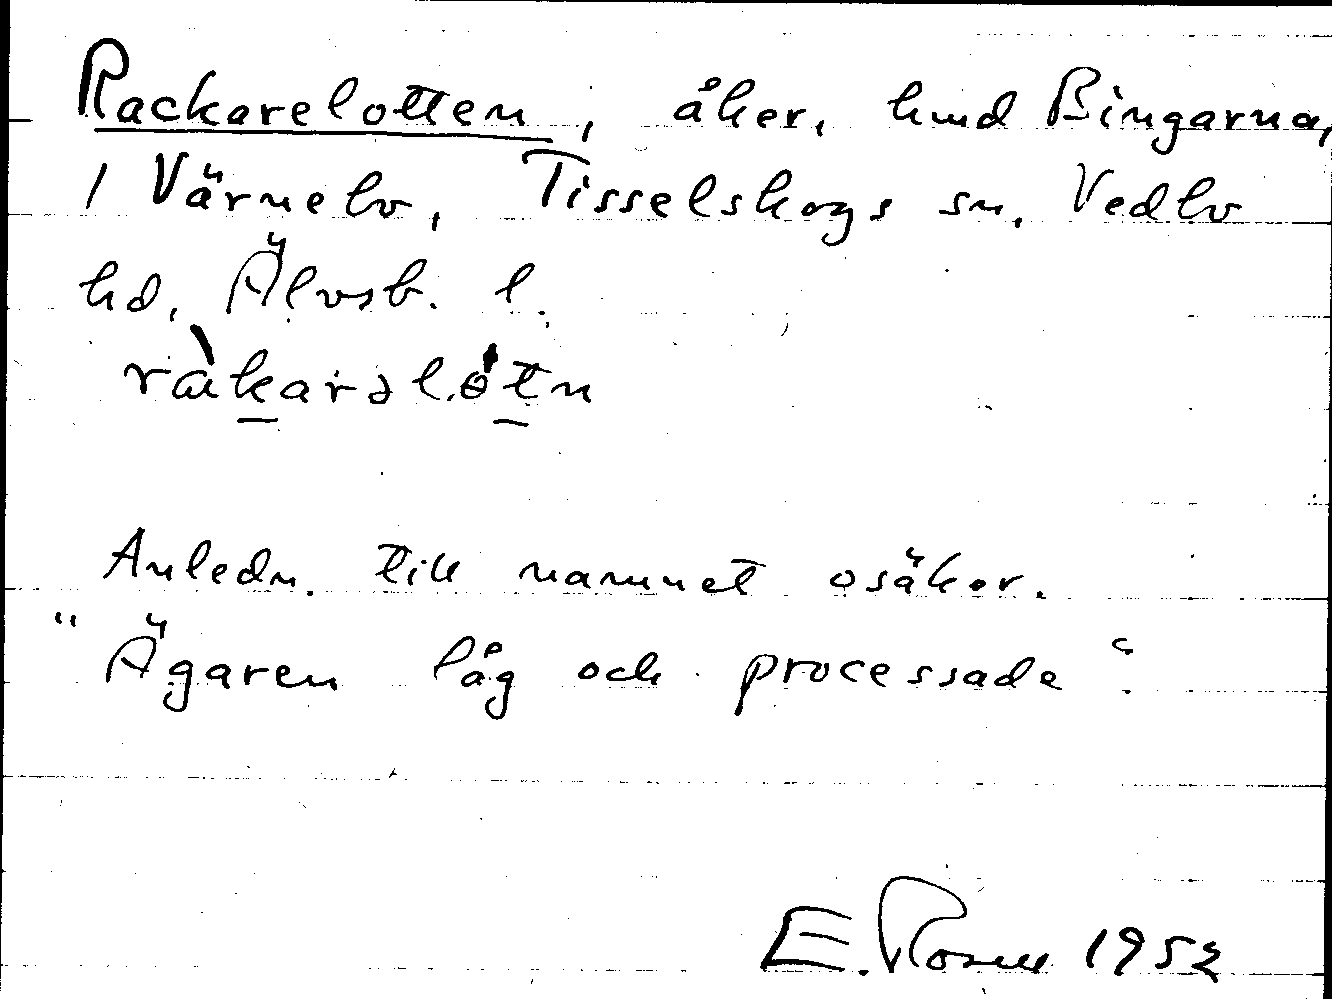 Rackarelotten, åker, hmd Bingarna,
1 Värnebo, Tisselskogs sn, Vedbo
hd, Älvsb. l.
ràkarəlɵ́tn
Anledn. till namnet osäker.
"Ägaren låg och processade".
E. Rosell 1952